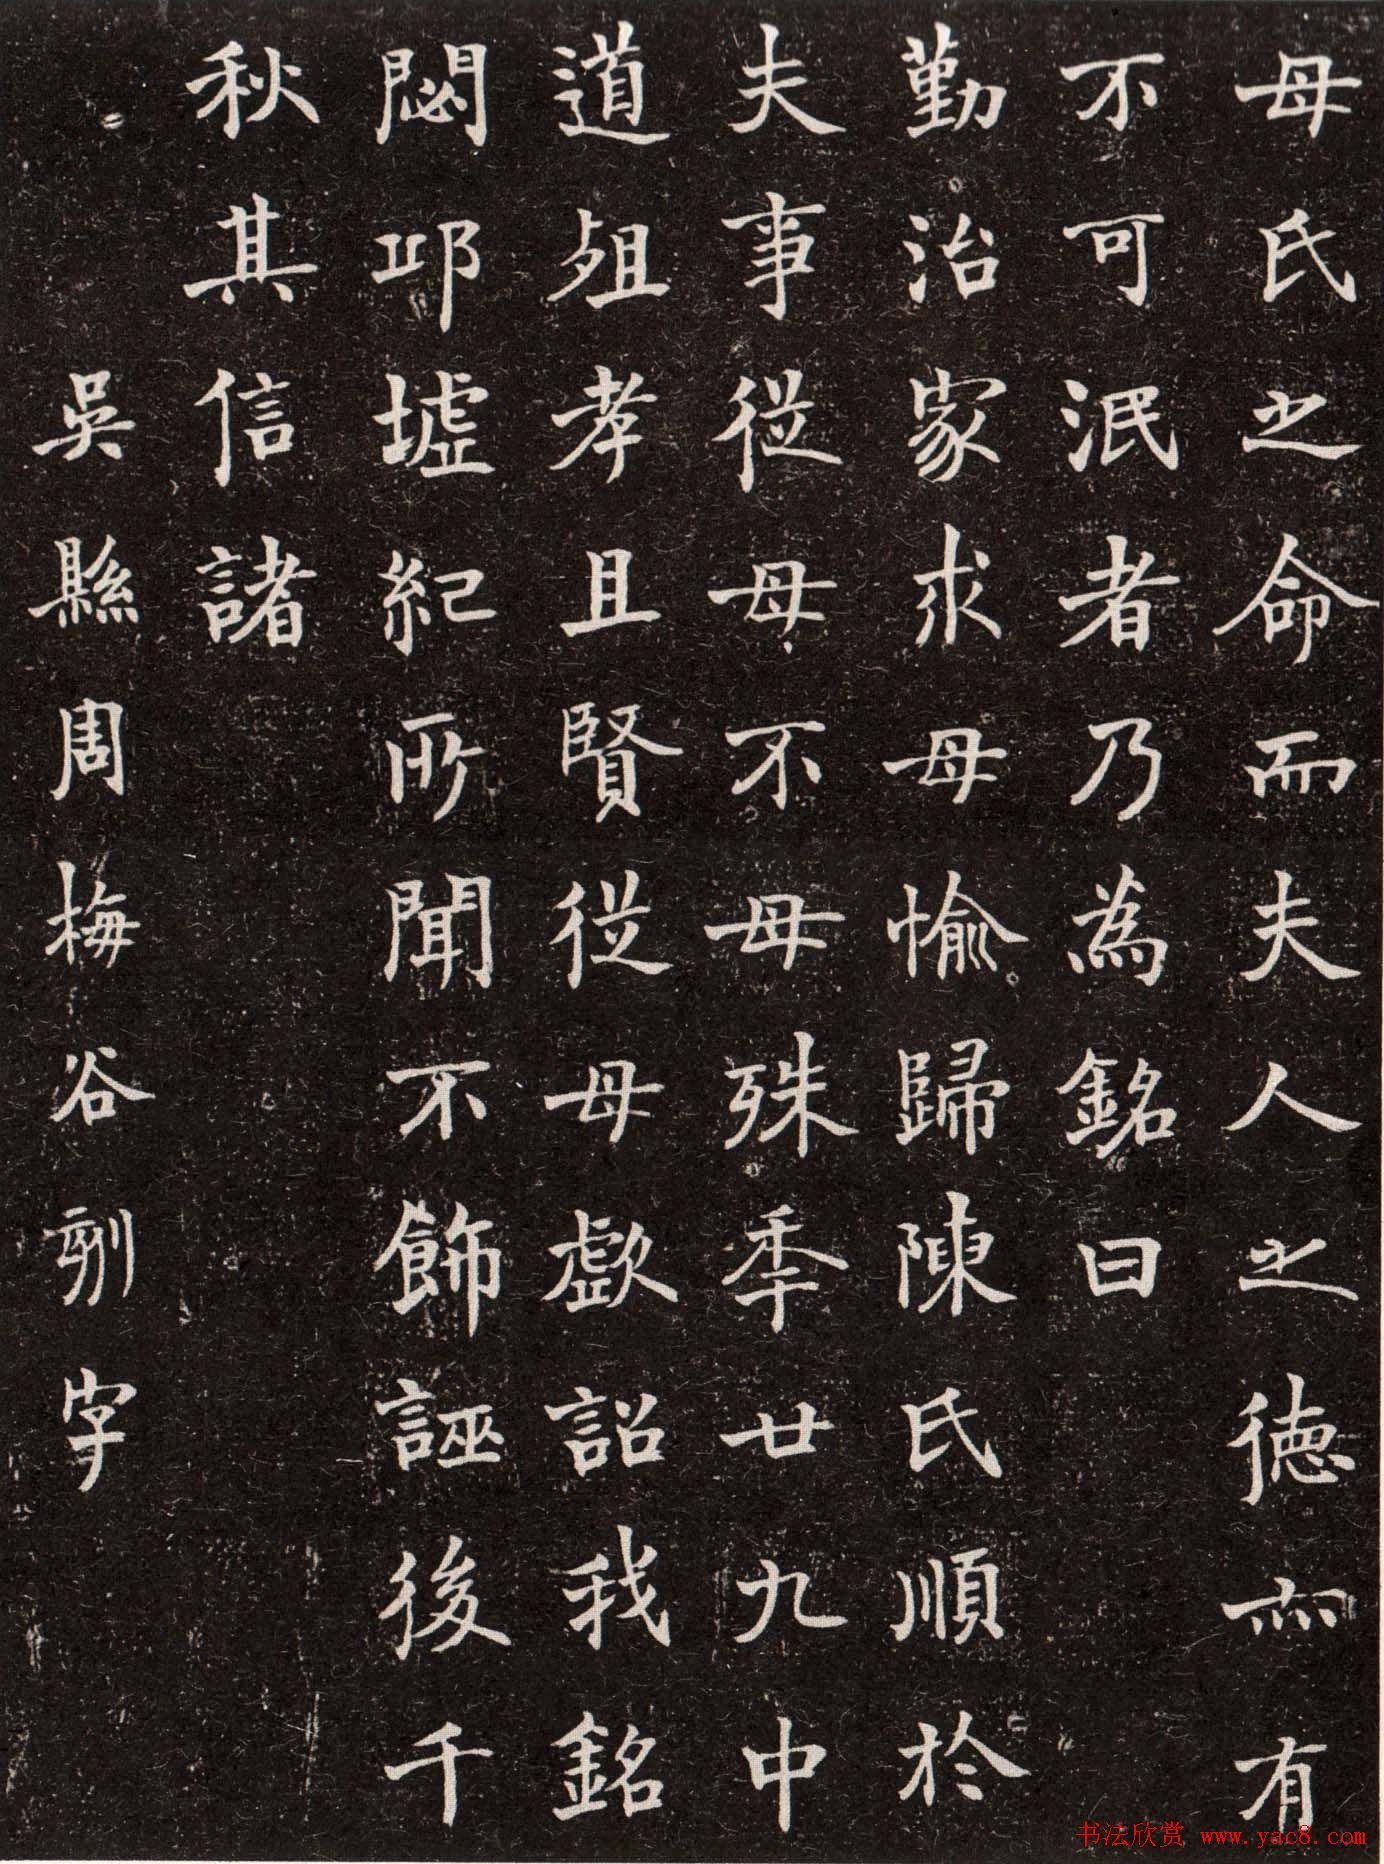 母氏之命而夫人之德亦有
不可泯者乃為銘曰
勤治家求母愉歸陳氏順於
夫事從母不母殊季廿九中
道殂孝且賢從母歔詔我銘
閟邛墟紀所聞不飾誣後千
秋其信諸
吳縣周梅谷刻字
书法欣赏 www.yac8.com